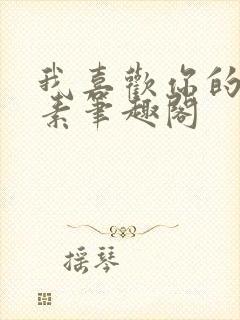 我喜歡你的
素筆趣閣
摇琴